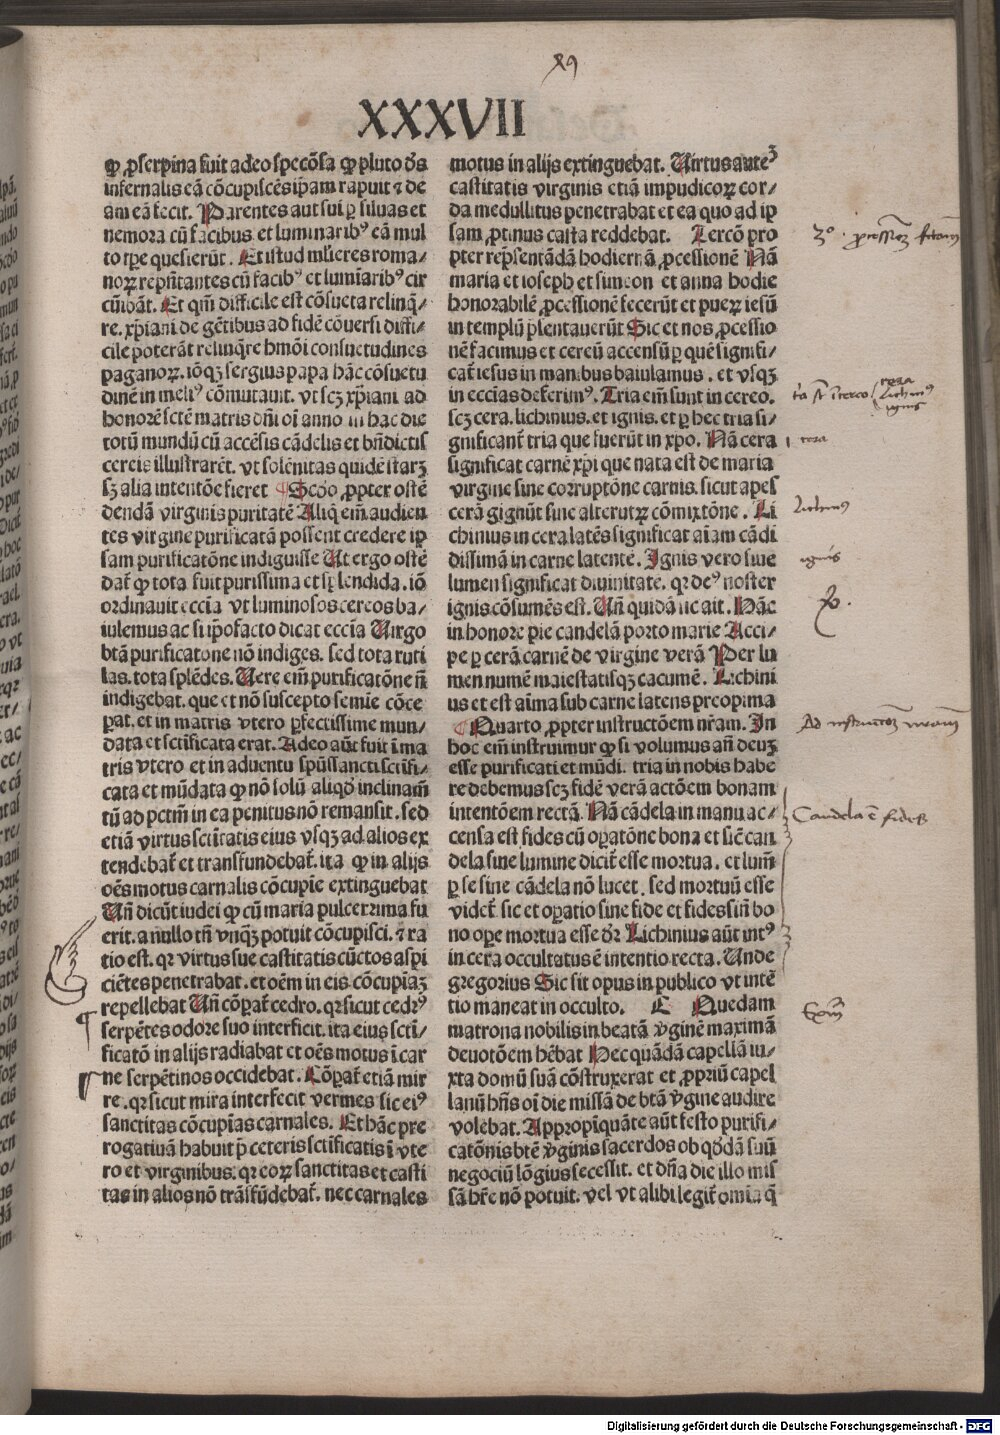 XXXVII
ꝙ ꝓserpina fuit adeo specõsa ꝙ pluto ds̄
infernalis eã cõcupiscẽs ip̃am rapuit ⁊ de
am eã fecit. Parentes aut sui ꝑ siluas et
nemora cũ facibus et luminaribꝰ eã mul
to tp̃e quesierũt. Et istud mulieres roma-
noꝝ rep̃ntantes cũ facibꝰ et lumĩaribꝰ cir
cũibãt. Et qm̃ difficile est cõsueta relinq̃-
re. xp̃iani de gẽtibus ad fidẽ cõuersi diffi-
cile poterãt relinq̃re hmõi consuetudines
paganoꝝ. iõqꝫ sergius papa hãc cõsuetu
dinẽ in meliꝰ cõmutauit. vt scꝫ xp̃iani ad
honorẽ sctẽ matris dñi oĩ anno in hac die
totũ mundũ cũ accẽsis cãdelis et bñdictis
cereis illustrarẽt. vt solẽnitas quidẽ staꝝ
sꝫ alia intentõe fieret ¶ Scďo ꝓpter ostẽ
dendã virginis puritatẽ Aliq̃ em̃ audien
tes virginẽ purificatã possent credere ip
sam purificatõne indiguisse Ut ergo ostẽ
dat̃ ꝙ tota fuit purissima et splendida. iõ
ordinauit eccĩa vt luminosos cereos ba-
iulemus ac si ip̃o facto dicat eccĩa Uirgo
btã purificatone nõ indiges. sed tota ruti
las. tota splẽdes. Uere em̃ purificatõne ñ
indigebat. que et nõ suscepto semĩe cõce
pat. et in matris vtero ꝑfectissime mun-
data et sctificata erat. Adeo aũt fuit ĩ ma
tris vtero et in aduentu spũssancti sctifi-
cata et mũdata ꝙ nõ solũ aliqđ inclinam̃
tũ ad pctm̃ in ea penitus nõ remansit. sed
etiã virtus sctitatis eius vsqꝫ ad alios ex
tendebat̃ et transfundebat̃. ita ꝙ in alijs
oẽs motus carnalis cõcupĩe extinguebat
Uñ dicũt iudei ꝙ cũ maria pulcerrima fu
erit. a nullo tñ vnqꝫ potuit cõcupisci. ⁊ ra
tio est. qꝛ virtus sue castitatis cũctos aspi
ciẽtes penetrabat. et oẽm in eis cõcupĩaꝫ
repellebat Uñ cõpat̃ cedro. qꝛ sicut cedrꝰ
serpẽtes odore suo interficit. ita eius scti-
ficatõ in alijs radiabat et oẽs motus ĩ car
ne serpẽtinos occidebat. Cõpat̃ etiã mir
re. qꝛ sicut mira interfecit vermes sic eiꝰ
sanctitas cõcupĩas carnales. Et hãc pre
rogatiuã habuit p̃ ceteris sctificatis ĩ vte
ro et virginibus. qꝛ eoꝝ sanctitas et casti
tas in alios nõ trãsfũdebat̃. nec carnales
motus in alijs extinguebat. Uirtus auteꝫ
castitatis virginis etiã impudicoꝝ cor-
da medullitus penetrabat et ea quo ad ip
sam ꝓtinus casta reddebat. Tercõ pro
pter rep̃sentãdã hodiernã ꝓcessionẽ Nã
maria et ioseph et simeon et anna hodie
honorabilẽ ꝓcessionẽ fecerũt et pueꝝ iesũ
in templũ p̃sentauerũt Sic et nos ꝓcessio
nẽ facimus et cereũ accensũ ꝑ quẽ signifi-
cat̃ iesus in manibus baiulamus. et vsqꝫ
in eccĩas deferimꝰ. Tria em̃ sunt in cereo.
scꝫ cera. lichinius. et ignis. et ꝑ hec tria si-
gnificant̃ tria que fuerũt in xp̃o. Nã cera
significat carnẽ xp̃i que nata est de maria
virgine sine corruptõne carnis. sicut apes
cerã gignũt sine alterutꝝ cõmixtõne. Li
chinius in cera latẽs significat aĩam cãdi
dissimã in carne latente. Ignis vero siue
lumen significat diuinitatẽ. qꝛ deꝰ noster
ignis cõsumẽs est. Uñ quidã sic ait. Hãc
in honore pie candelã porto marie Acci-
pe ꝑ cerã carnẽ de virgine verã Per lu
men numẽ maiestatisqꝫ cacumẽ. Lichini
us et est aĩma sub carne latens preopima
¶ Quarto ꝓpter instructõem nr̃am. In
hoc em̃ instruimur ꝙ si volumus añ deuꝫ
esse purificati et mũdi. tria in nobis habe
re debemus scꝫ fidẽ verã actõem bonam
intentõem rectã. Nã cãdela in manu ac-
censa est fides cũ oꝑatõne bona et sic̃ can
dela sine lumine dicit̃ esse mortua. et lum̃
ꝑ se sine cãdela nõ lucet. sed mortuũ esse
videt̃. sic et oꝑatio sine fide et fides sñ bo
no oꝑe mortua esse dr̃. Lichinius aũt intꝰ
in cera occultatus ẽ intentio recta. Unde
gregorius Sic sit opus in publico vt intẽ
tio maneat in occulto. E Quedam
matrona nobilis in beatã v̂ginẽ maximã
deuotõem hẽbat Hec quãdã capellã iu-
xta domũ suã cõstruxerat et ꝓpriũ capel
lanũ hñs oĩ die missã de btã v̂gine audire
volebat. Appropĩquãte aũt festo purifi-
catõnis btẽ v̂ginis sacerdos ob qđdã suũ
negociũ lõgius secessit. et dña die illo mis
sã hr̃e nõ potuit. vel vt alibi legit̃ omĩa q̃
cera
Lichinꝰ
ignis
Candela ẽ fides
Digitalisierung gefördert durch die Deutsche Forschungsgemeinschaft - DFG